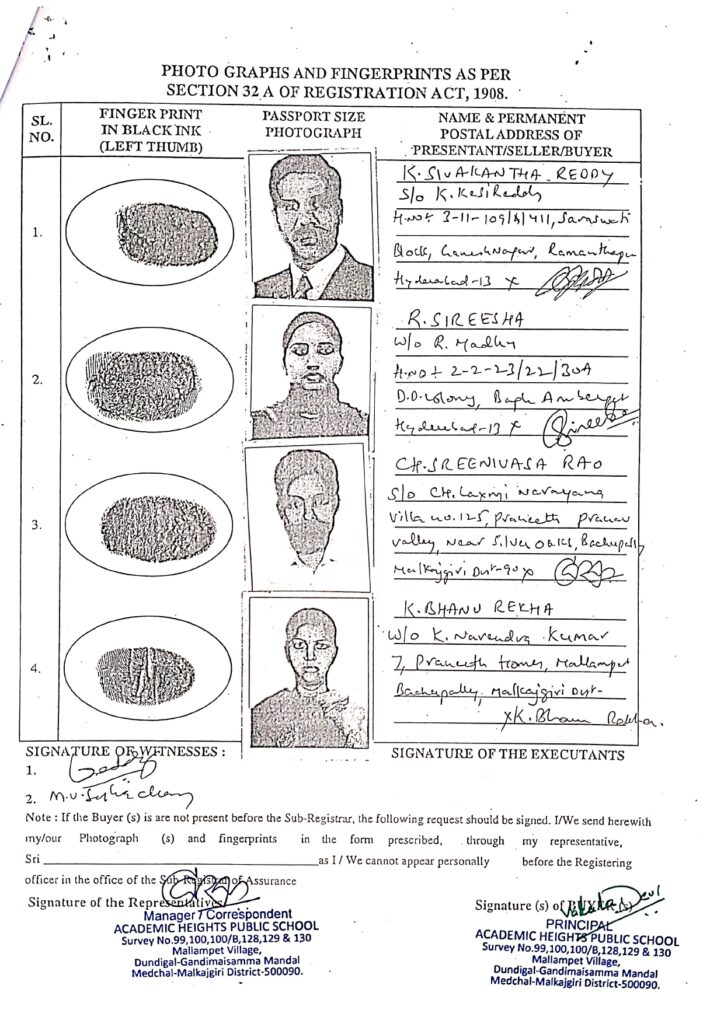 PHOTO GRAPHS AND FINGERPRINTS AS PER
SECTION 32 A OF REGISTRATION ACT, 1908.
SL. NO.
FINGER PRINT IN BLACK INK (LEFT THUMB)
PASSPORT SIZE PHOTOGRAPH
NAME & PERMANENT POSTAL ADDRESS OF PRESENTANT/SELLER/BUYER
1.
K. SIVAKANTHA REDDY
S/o K. Kesi Reddy
H.No: 3-11-109/B/411, Saraswati
Block, Ganesh Nagar, Ramanthapur
Hyderabad-13 x
2.
R. SIREESHA
W/o R. Madhu
H.no: 2-2-23/22/30A
D.D. Colony, Bagh Amberpet
Hyderabad-13 x Sireesha
3.
CH. SREENIVASA RAO
S/o CH. Laxmi Narayana
Villa no. 125, Praneeth Pranav
Valley, near Silver Oaks, Bachupally
Malkajgiri Dist-90 x
4.
K. BHANU REKHA
W/o K. Narendra Kumar
7, Praneeth Homes, Mallampet
Bachupally, Malkajgiri Dist-
x K. Bhanu Rekha.
SIGNATURE OF WITNESSES :
SIGNATURE OF THE EXECUTANTS
1.
2.
Note : If the Buyer (s) is are not present before the Sub-Registrar, the following request should be signed. I/We send herewith
my/our Photograph (s) and fingerprints in the form prescribed, through my representative,
Sri as I / We cannot appear personally before the Registering
officer in the office of the Sub-Registrar of Assurance
Signature of the Representatives
Signature (s) of BUYER (s)
Manager / Correspondent
ACADEMIC HEIGHTS PUBLIC SCHOOL
Survey No.99,100,100/B,128,129 & 130
Mallampet Village,
Dundigal-Gandimaisamma Mandal
Medchal-Malkajgiri District-500090.
PRINCIPAL
ACADEMIC HEIGHTS PUBLIC SCHOOL
Survey No.99,100,100/B,128,129 & 130
Mallampet Village,
Dundigal-Gandimaisamma Mandal
Medchal-Malkajgiri District-500090.